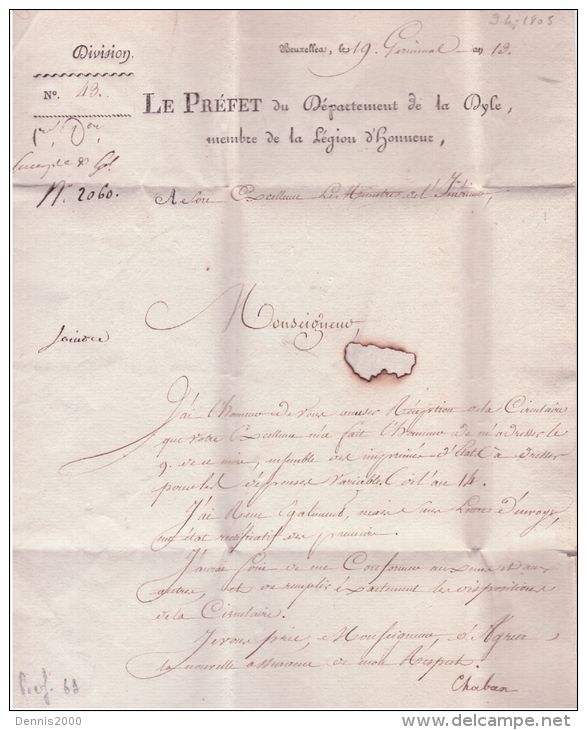 9-4-1805
Division.
Bruxelles, le 19. Germinal an 13.
N°. 43.
LE PRÉFET du Département de la Dyle,
membre de la Légion d'Honneur,
N° 2060.
A Son Excellence le Ministre de l'Intérieur,
Monseigneur,
Joindre
J'ai l'honneur de vous accuser Réception de la Circulaire
que votre Excellence m'a fait l'honneur de m'adresser le
9. de ce mois, ensemble des imprimés d'Etat à dresser
pour les dépenses variables de l'an 14.
J'ai Reçu Egalement, mais sans Lettre d'envoy,
un état rectificatif du premier.
J'aurai soin de me Conformer aux uns et aux
autres, et de remplir Exactement les dispositions
de la Circulaire.
Je vous prie, Monseigneur, d'Agréer
la nouvelle assurance de mon Respect.
Chaban
Pref. 63
Dennis2000
delcampe.net